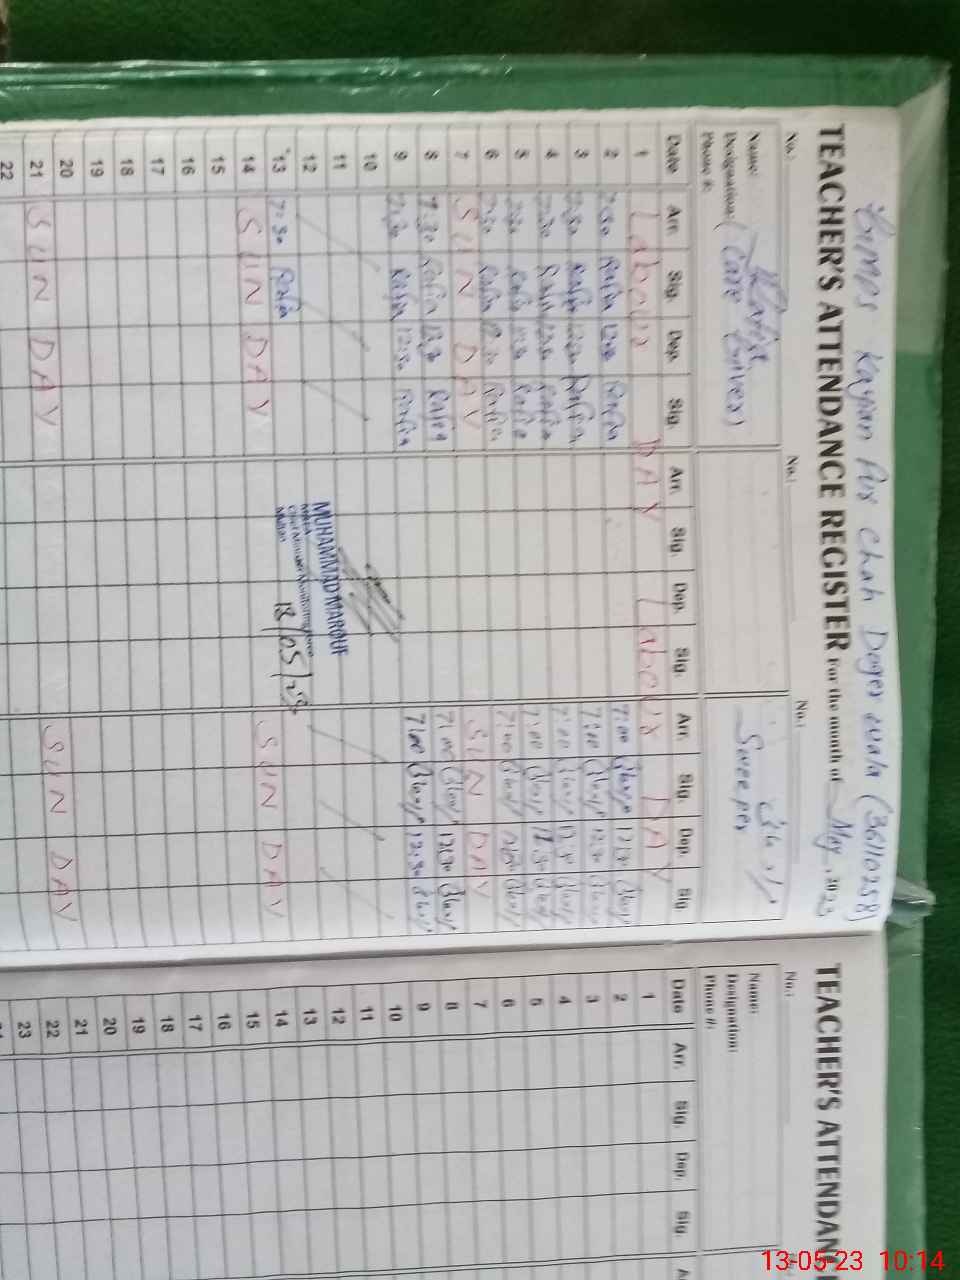 GMPS Kayian Pur Chah Doger wala (36110258)
TEACHER'S ATTENDANCE REGISTER For the month of May, 2023
No.: No.: No.:
Name: Rafia
Designation: (Care Giver) Sweeper
Phone #:
Date Arr. Sig. Dep. Sig. Arr. Sig. Dep. Sig. Arr. Sig. Dep. Sig.
1 Labour DAY Labour DAY
2 7:30 Rafia 12:30 Rafia 7:00 12:30
3 7:30 Rafia 12:30 Rafia 7:00 12:30
4 7:30 Rafia 12:30 Rafia 7:00 12:30
5 7:30 Rafia 12:30 Rafia 7:00 12:30
6 7:30 Rafia 12:30 Rafia 7:00 12:30
7 SUN DAY SUN DAY
8 7:30 Rafia 12:30 Rafia 7:00 12:30
9 7:30 Rafia 12:30 Rafia 7:00 12:30
10
11
12
13 7:30 Rafia
14 SUN DAY SUN DAY
15
16
17
18
19
20
21 SUN DAY SUN DAY
22
MUHAMMAD MAROUF
MEA
Chief Minister Monitoring Force
Multan
13/05/23
TEACHER'S ATTENDANC
No.:
Name:
Designation:
Phone #:
Date Arr. Sig. Dep. Sig.
1
2
3
4
5
6
7
8
9
10
11
12
13
14
15
16
17
18
19
20
21
22
23
13-05-23 10:14